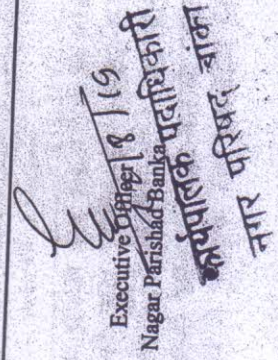 Executive Officer
Nagar Parishad Banka
कार्यपालक पदाधिकारी
नगर परिषद् बांका